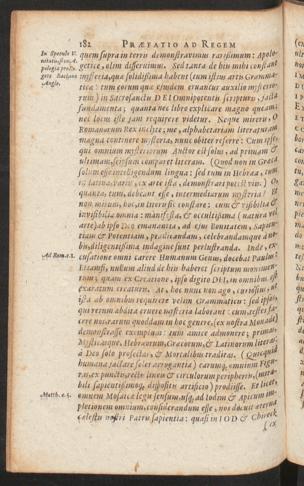 182 PRÆFATIO AD REGEM
In Speculo V-
nitatis: siue, A-
pologia pro fra-
tre Bachone
Anglo.
quem supra in terris demonstravimus rarissimum: Apolo-
getice, olim disseruimus. Sed tanta de hiis mihi constant
mysteria, quæ solidissima habent (tum istius artis Gramma-
ticæ: tum eorum quæ eiusdem enantur auxilio mysterio-
rum) in Sacrosanctis DEI Omnipotentis scripturis, iacta
fundamenta; quanta nec libro explicare magno queam:
nec loco isto iam requirere videtur. Neque mireris, O
Romanorum Rex inclite; me, alphabetariam literaturam
magna continere mysteria, nunc obiter referre: Cum ipse
qui omnium mysteriorum Author est solus, ad primam &
ultimam, seipsum comparet literam. (Quod non in Græca
solum esse intelligendum lingua: sed tum in Hebræa, tum
in Latina, variis, ex arte ista, demonstrari potest viis.) O
quanta, tum, debeant esse, intermediarum mysteria? Et
non mirum, hoc in literis sic constare: cum & visibilia &
invisibilia omnia: manifesta, & occultissima (natura vel
arte) ab ipso DEO emanantia, ad eius Bonitatem, Sapien-
tiam & Potentiam, prædicandam, celebrandamque a no-
bis, diligentissima indagine sunt perlustranda. Inde, ex-
Ad Rom. c. 1.
cusatione omni carere Humanum Genus, docebat Paulus:
Etiamsi, nullum aliud de hiis haberet scriptum monumen-
tum; quam ex Creatione, ipso digito DEI, in omnibus est
exaratum creaturis. At, hoc nunc non ago,
ista ab omnibus requirere velim Grammaticis: sed ipsos,
qui rerum abdita eruere mysteria laborant: cum
cere nos rarum quoddam in hoc genere, (ex nostra Monade)
demonstrasse exemplum: tum amice admonere; primas,
Mysticasque, Hebræorum, Græcorum, & Latinorum literas;
à Deo solo profectas, & Mortalibus traditas. (Quicquid
humana iactare solet arrogantia) earumque, omnium Figu-
ras, ex punctis, rectis lineis & circulorum peripheriis, (mira-
bili sapientissimoque dispositis artificio) prodiisse. Et licet,
Matth. c. 5.
omnem Mosaicæ legis sensum, usque ad Iodem & Apicum im-
pletionem omnium, considerandum esse, nos docuit æterna
cælestis nostri Patris sapientia: quasi in IOD & Chireck